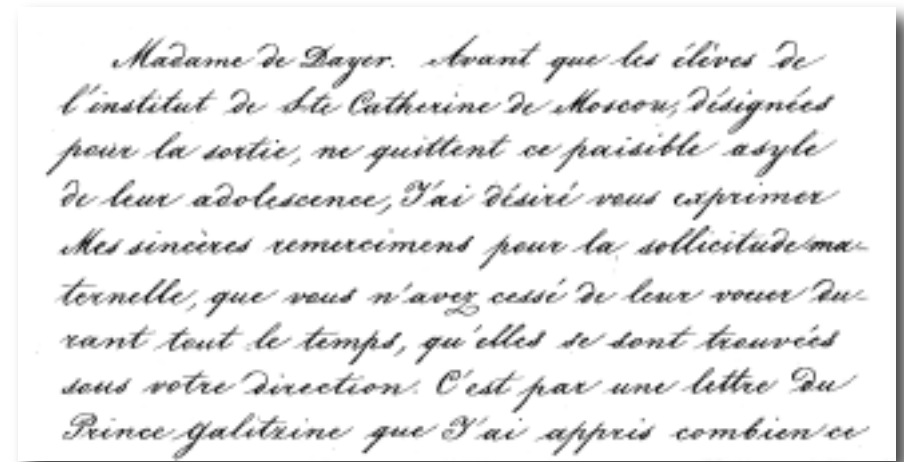 Madame de Dayer. Avant que les élèves de
l'institut de Ste Catherine de Moscou, désignées
pour la sortie, ne quittent ce paisible asyle
de leur adolescence, J'ai désiré vous exprimer
Mes sincères remercimens pour la sollicitude ma-
ternelle, que vous n'avez cessé de leur vouer du-
rant tout le temps, qu'elles se sont trouvées
sous votre direction. C'est par une lettre du
Prince Galitzine que J'ai appris combien ce